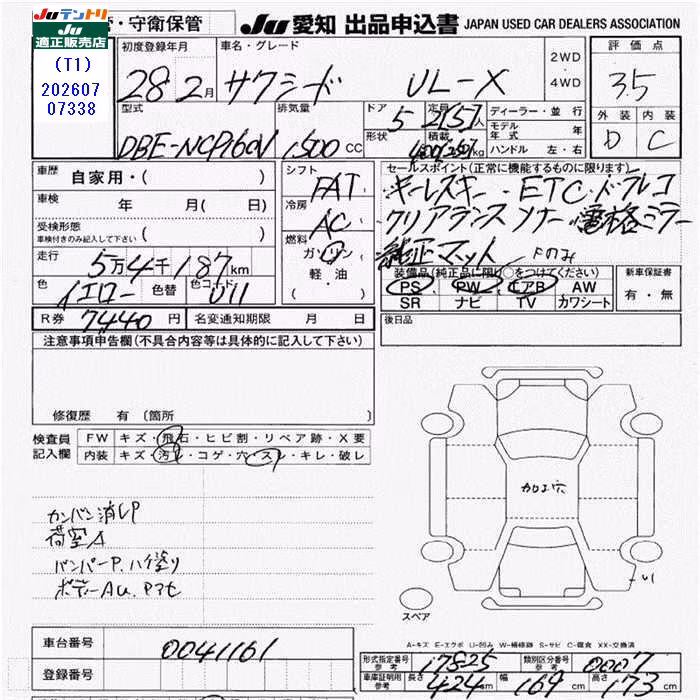 Juテントリ
JU 適正販売店
(T1)
202607
07338
・守衛保管
Ju 愛知 出品申込書 JAPAN USED CAR DEALERS ASSOCIATION
初度登録年月 車名・グレード 2WD・4WD 評価点
28年2月 サクシード UL-X 3.5
型式 排気量 ドア 5 定員 2(5)人 ディーラー・並行 外装 内装
DBE-NCP160V 1500CC 形状 積載 400(250)kg モデル年式 年 D C
ハンドル 左・右
車歴 自家用・( ) シフト FAT セールスポイント(正常に機能するものに限ります)
車検 年 月( 日) 冷房 AC キーレスキー・ETC・ドラレコ
受検形態 車検付きのみ記入して下さい ( ) クリアランスソナー 電格ミラー
走行 5万4千187km 燃料 ガソリン 軽・油 純正マット Fのみ
色 イエロー 色替 色コード U11
装備品(純正品に限り○をつけてください) 新車保証書
PS PW エアB AW 有・無
SR ナビ TV カワシート
R券 7440円 名変通知期限 月 日 後日品
注意事項申告欄(不具合内容等は具体的に記入して下さい)
修復歴 有 (箇所 )
検査員記入欄 FW キズ・飛石・ヒビ割・リペア跡・X要
内装 キズ・汚レ・コゲ・穴・スレ・キレ・破レ
カンバン消しP
荷室A
バンパーP.ハケ塗り
ボディーAU.Pマモ
加工穴
U1
スペア
A-キズ E-エクボ U-凹み W-補修跡 S-サビ C-腐食 XX-交換済
車台番号 0041161
登録番号
形式指定番号 参考 17825 類別区分番号 参考 0007
車庫証明用 参考 長さ 424cm 幅 169cm 高さ 173cm